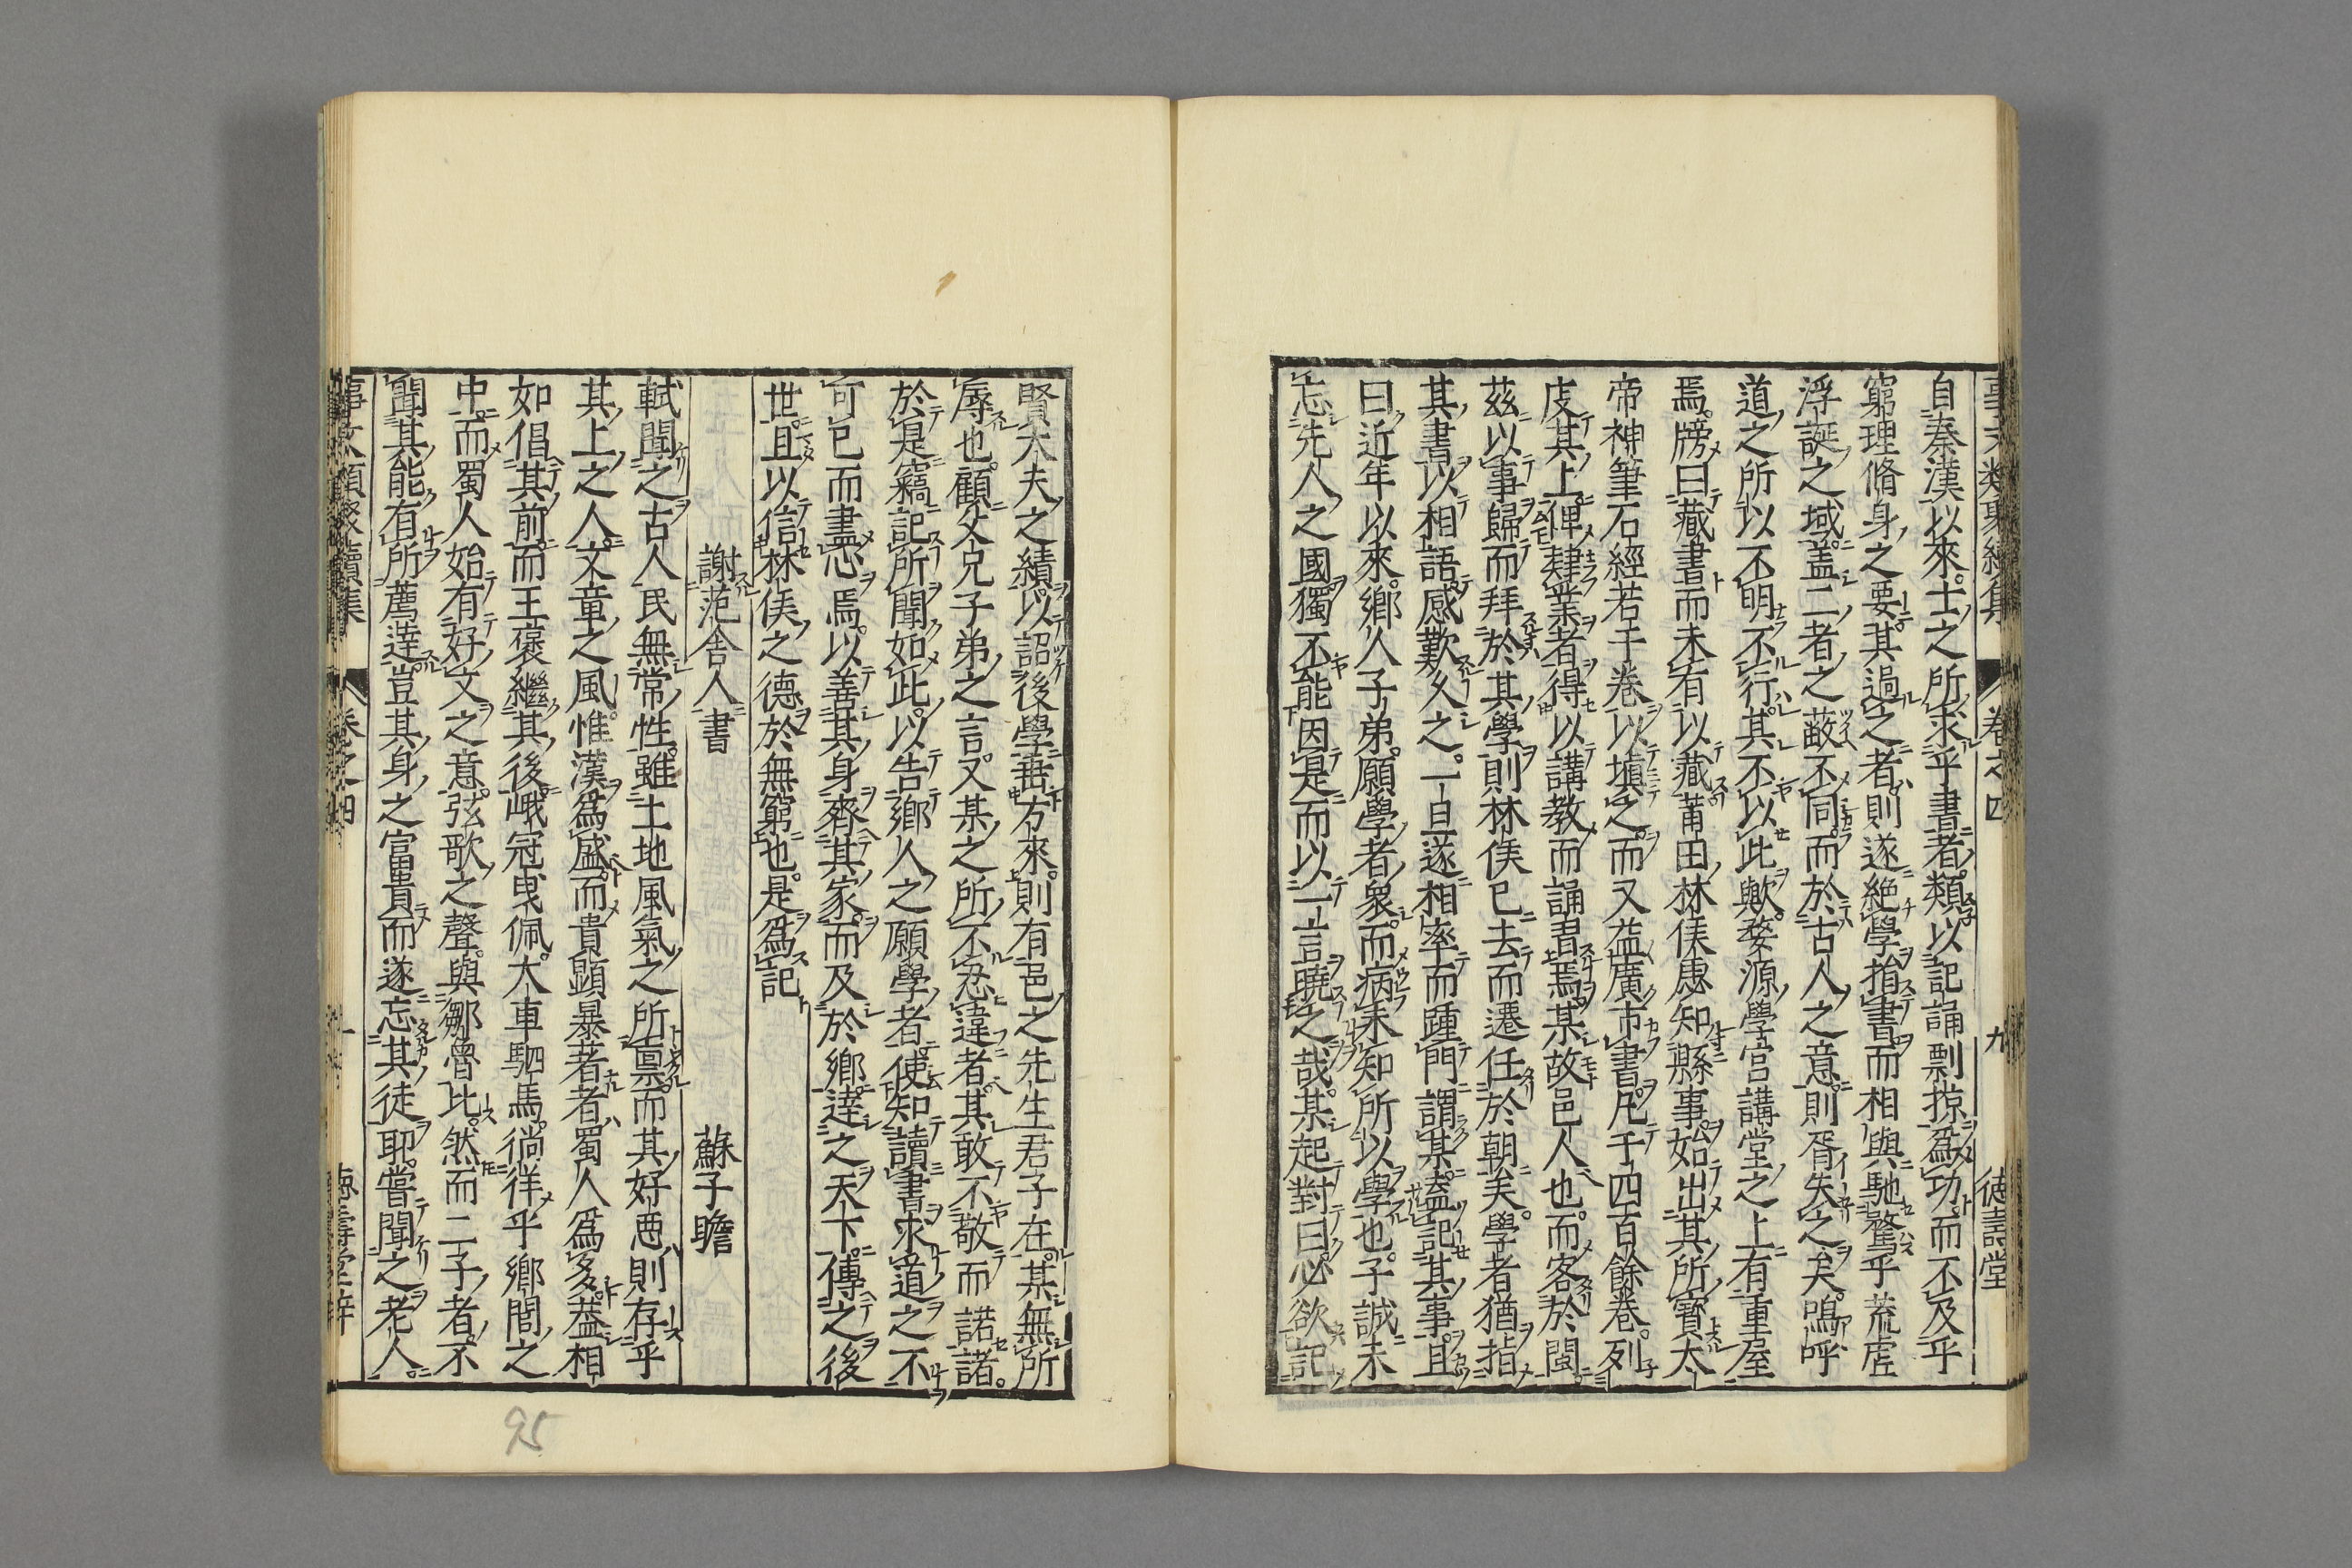 事文類聚續集 卷之四 九 德壽堂
自秦漢以來士之所求乎書者類以記誦剽掠爲功而不及乎
窮理脩身之要其過之者則遂絶學捐書而相與馳騖乎荒虛
浮誕之域盖二者之蔽不同而於古人之意則胥失之矣嗚呼
道之所以不明不行其不以此歟婺源學宮講堂之上有重屋
焉牓曰藏書而未有以藏莆田林侯慮知縣事始出其所寶太
帝神筆石經若干卷以塡之而又益廣市書凡千四百餘卷列
庋其上俾肄業者得以講教而誦習焉某故邑人也而客於閩
茲以事歸而拜於其學則林侯已去而遷任於朝矣學者猶指
其書以相語感歎久之一旦遂相率而踵門謂某盍記其事且
曰近年以來鄉人子弟願學者衆而病未知所以學也子誠未
忘先人之國獨不能因是而以一言曉之哉某起對曰必欲記
賢大夫之績以詔後學垂方來則有邑之先生君子在某無所
辱也顧父兄子弟之言又某之所不忍違者其敢不敬而諾諸
於是竊記所聞如此以告鄉人之願學者使知讀書求道之不
可已而盡心焉以善其身齊其家而及於鄉達之天下傳之後
世且以信林侯之德於無窮也是爲記
謝范舍人書 蘇子瞻
軾聞之古人民無常性雖土地風氣之所禀而其好惡則存乎
其上之人文章之風惟漢爲盛而貴顯暴著者蜀人爲多葢相
如倡其前而王褒繼其後峨冠曳佩大車駟馬徜徉乎鄉閭之
中而蜀人始有好文之意弦歌之聲與鄒魯比然而二子者不
聞其能有所薦達豈其身之富貴而遂忘其徒耶嘗聞之老人
事文類聚續集 卷之四
95